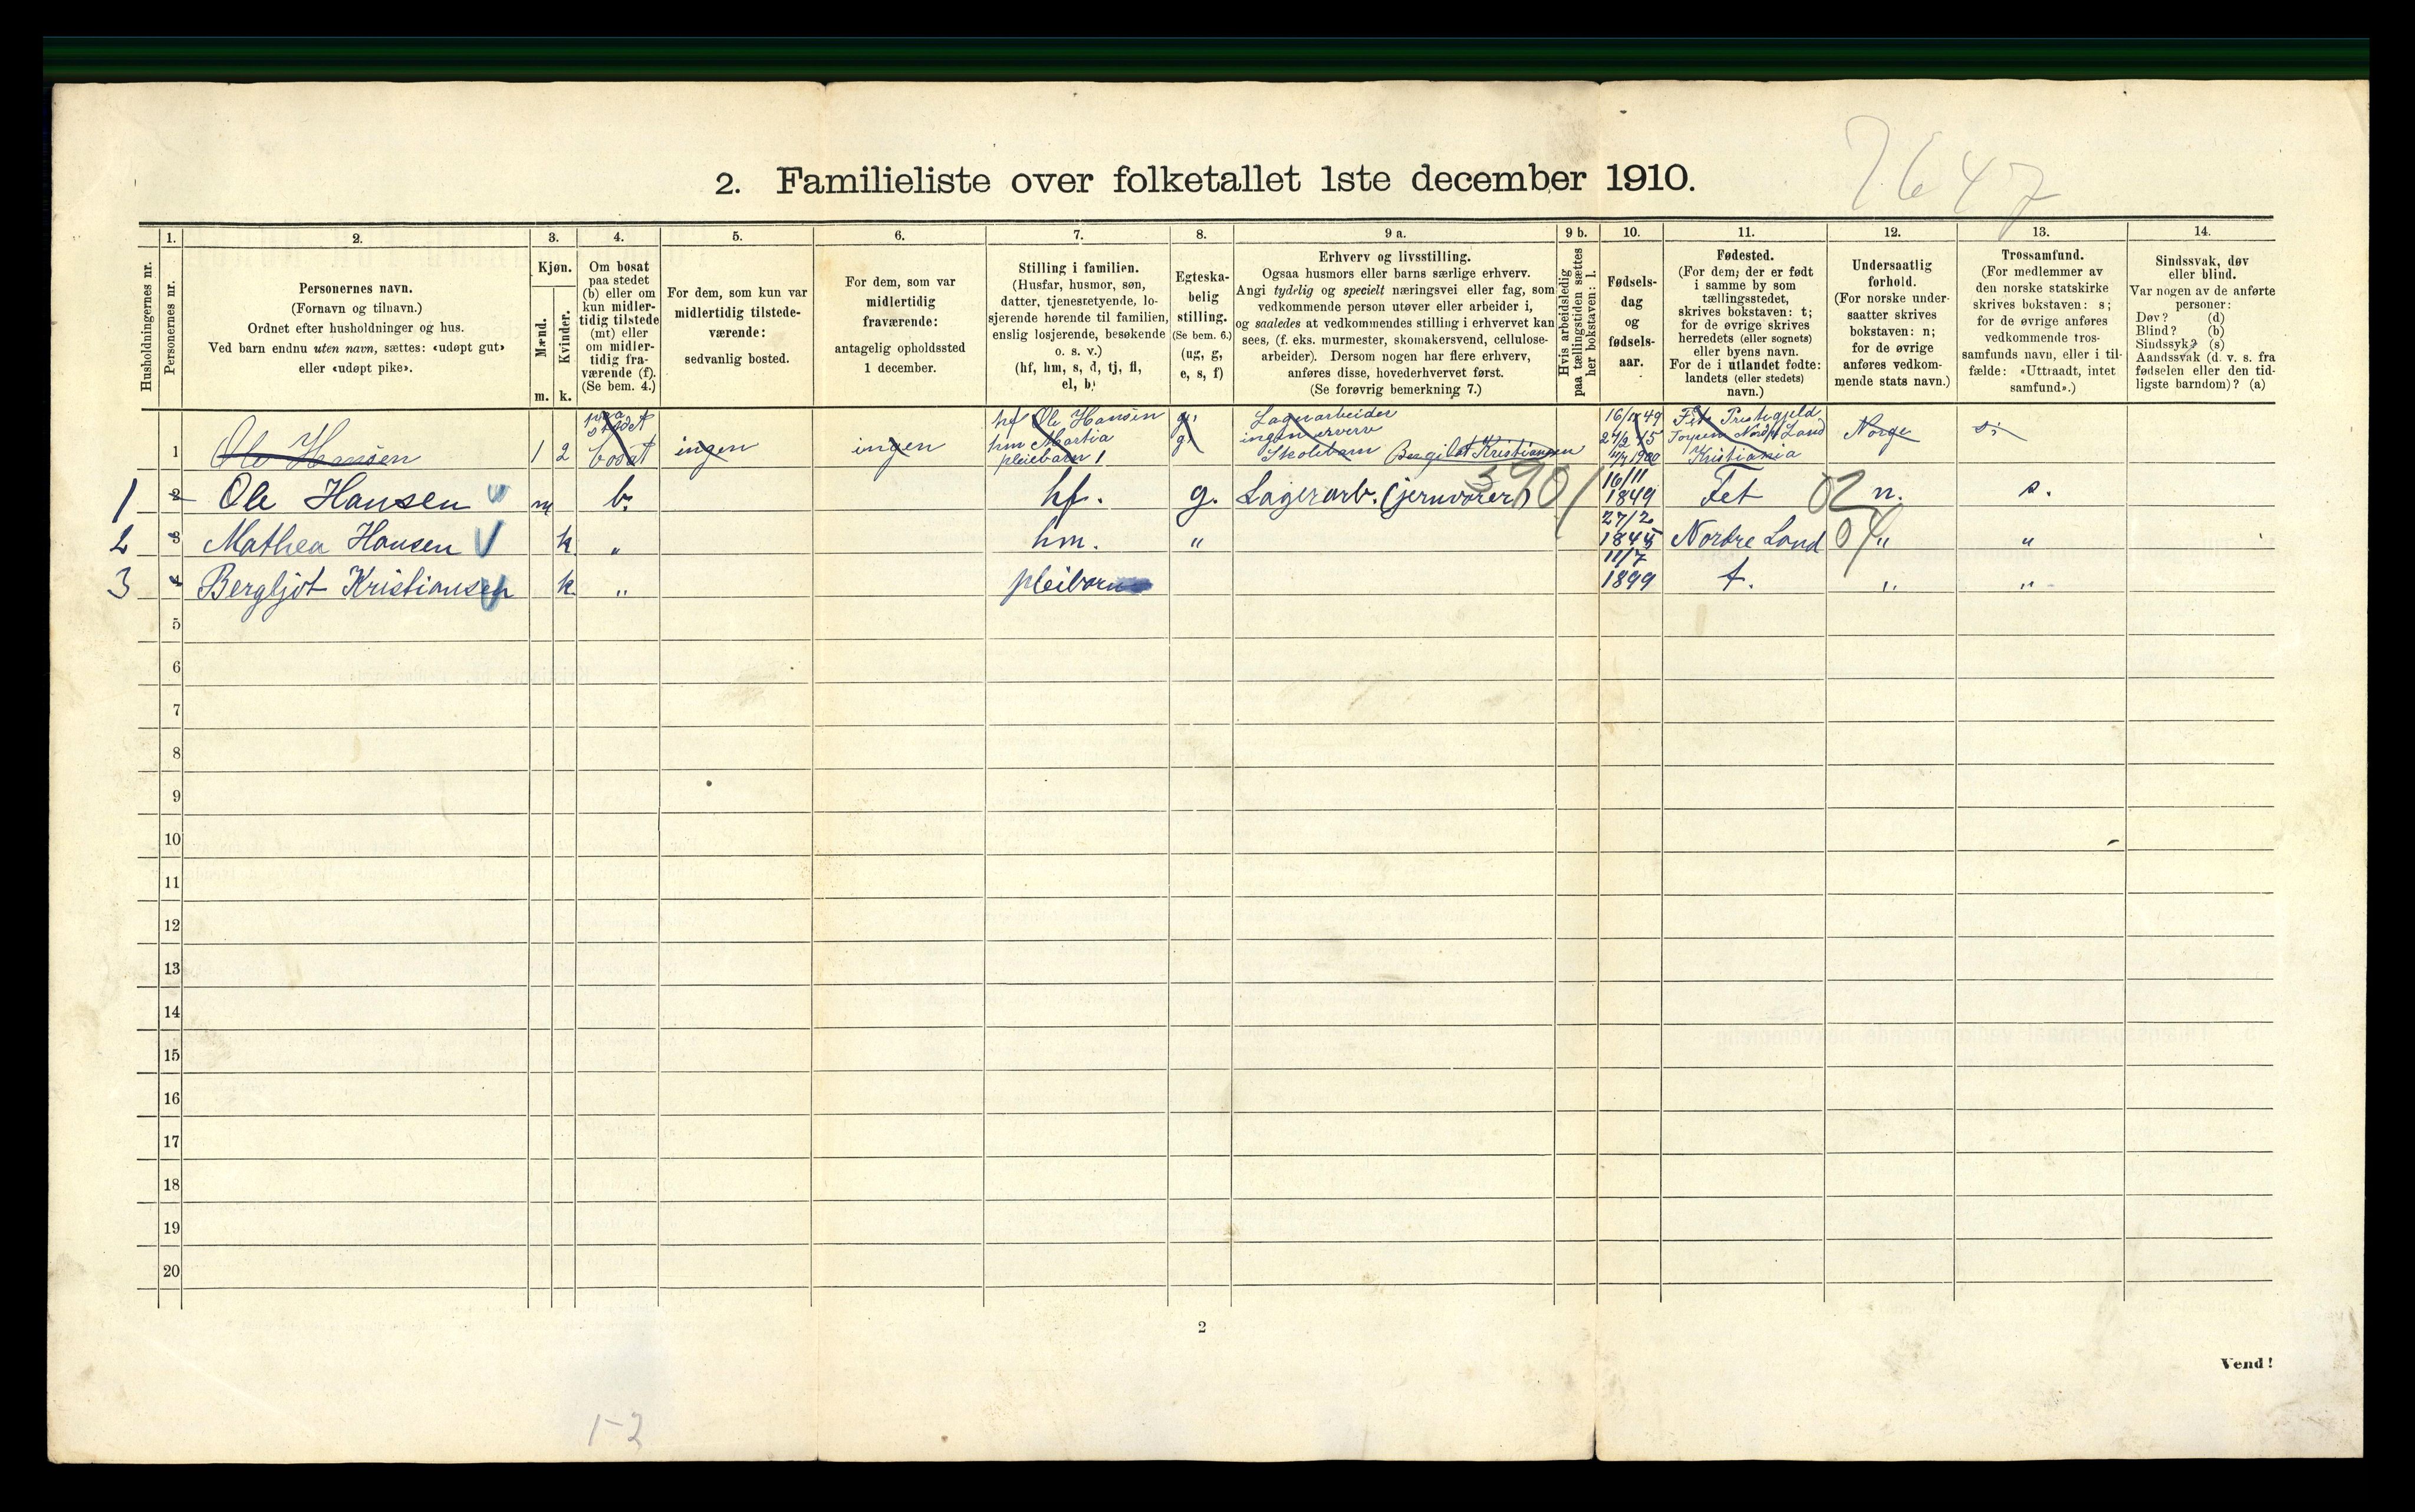 7647
2. Familieliste over folketallet 1ste december 1910.
1. 2. 3. 4. 5. 6. 7. 8. 9 a. 9 b. 10. 11. 12. 13. 14.
Husholdningernes nr.
Personernes nr.
Personernes navn.
(Fornavn og tilnavn.)
Ordnet efter husholdninger og hus.
Ved barn endnu uten navn, sættes: «udøpt gut»
eller «udøpt pike».
Kjøn.
Mænd.
Kvinder.
m. k.
Om bosat
paa stedet
(b) eller om
kun midler-
tidig tilstede
(mt) eller
om midler-
tidig fra-
værende (f).
(Se bem. 4.)
For dem, som kun var
midlertidig tilstede-
værende:
sedvanlig bosted.
For dem, som var
midlertidig
fraværende:
antagelig opholdssted
1 december.
Stilling i familien.
(Husfar, husmor, søn,
datter, tjenestetyende, lo-
sjerende hørende til familien,
enslig losjerende, besøkende
o. s. v.)
(hf, hm, s, d, tj, fl,
el, b)
Egteska-
belig
stilling.
(Se bem. 6.)
(ug, g,
e, s, f)
Erhverv og livsstilling.
Ogsaa husmors eller barns særlige erhverv.
Angi tydelig og specielt næringsvei eller fag, som
vedkommende person utøver eller arbeider i,
og saaledes at vedkommendes stilling i erhvervet kan
sees, (f. eks. murmester, skomakersvend, cellulose-
arbeider). Dersom nogen har flere erhverv,
anføres disse, hovederhvervet først.
(Se forøvrig bemerkning 7.)
Hvis arbeidsledig
paa tællingstiden sættes
her bokstaven: l.
Fødsels-
dag
og
fødsels-
aar.
Fødested.
(For dem, der er født
i samme by som
tællingsstedet,
skrives bokstaven: t;
for de øvrige skrives
herredets (eller sognets)
eller byens navn.
For de i utlandet fødte:
landets (eller stedets)
navn.)
Undersaatlig
forhold.
(For norske under-
saatter skrives
bokstaven: n;
for de øvrige
anføres vedkom-
mende stats navn.)
Trossamfund.
(For medlemmer av
den norske statskirke
skrives bokstaven: s;
for de øvrige anføres
vedkommende tros-
samfunds navn, eller i til-
fælde: «Uttraadt, intet
samfund».)
Sindssvak, døv
eller blind.
Var nogen av de anførte
personer:
Døv? (d)
Blind? (b)
Sindssyk? (s)
Aandssvak (d. v. s. fra
fødselen eller den tid-
ligste barndom)? (a)
paa stedet hf Ole Hansen g. Lagerarbeider 16/11 49 Fet Prestegjeld
1 Ole Hansen 1 2 bosat ingen ingen hm Martia g. ingen erverv 27/2 45 Torpen Nord Land Norge s.
pleiebarn 1 Skolebarn Bergliot Kristiansen 11/7 1900 Kristiania
1 2 Ole Hansen m b. hf. g. Lagerarb. (jernvarer) 3901 16/11 1849 Fet 02 n. s.
2 3 Mathea Hansen k „ hm. „ 27/2 1845 Nordre Land 04 „ „
3 4 Bergljot Kristiansen k „ pleibarn 11/7 1899 t. „ „
5
6
7
8
9
10
11
12
13
14
15
16
17
18
19
20
2
Vend!
1-2